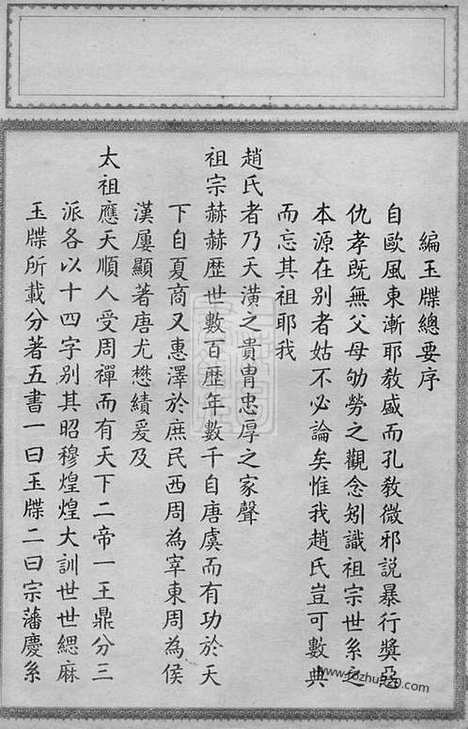 編玉牒總要序
自歐風東漸耶敎盛而孔敎微邪說暴行獎惡
仇孝旣無父母劬勞之觀念矧識祖宗世系之
本源在别者姑不必論矣惟我趙氏豈可數典
而忘其祖耶我
趙氏者乃天潢之貴胄忠厚之家聲
祖宗赫赫歴世數百歴年數千自唐虞而有功於天
下自夏商又惠澤於庶民西周為宰東周為侯
漢屢顯著唐尤懋績爰及
太祖應天順人受周禪而有天下二帝一王鼎分三
派各以十四字别其昭穆煌煌大訓世世緦麻
玉牒所載分著五書一曰玉牒二曰宗藩慶系